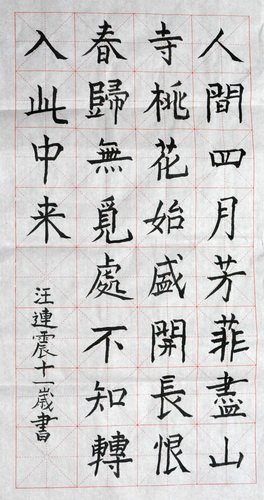 人間四月芳菲盡山
寺桃花始盛開長恨
春歸無覓處不知轉
入此中来
汪連震十一歲書